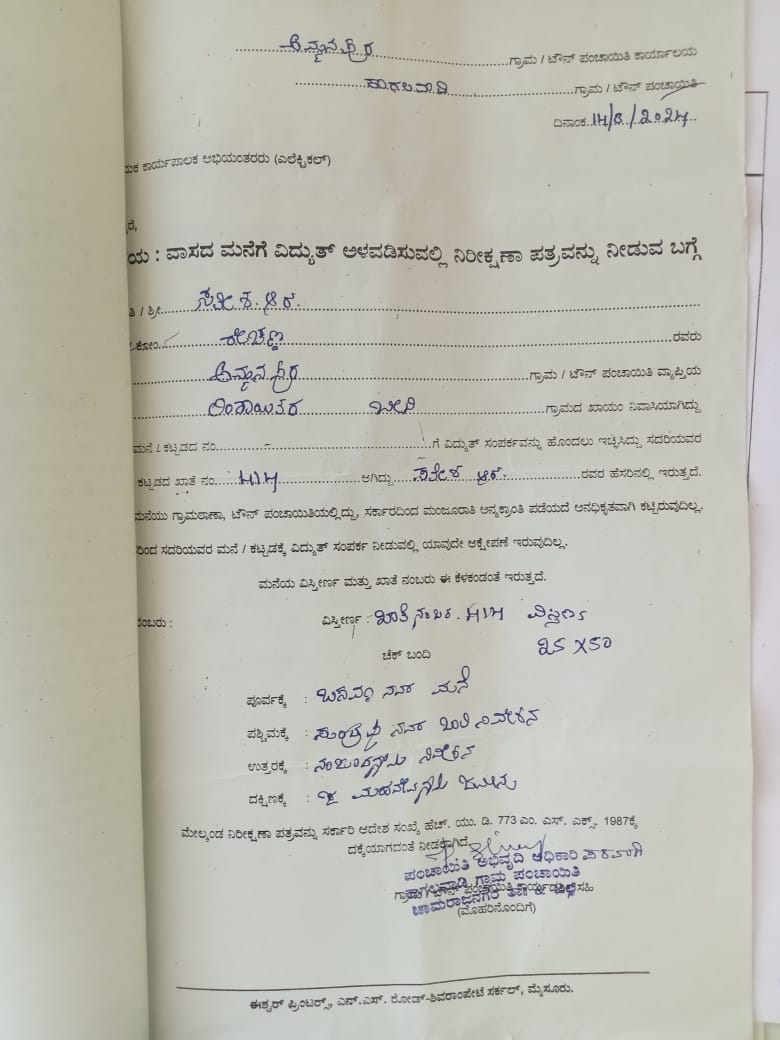 ಅಮ್ಮನಪುರ ಗ್ರಾಮ / ಟೌನ್ ಪಂಚಾಯಿತಿ ಕಾರ್ಯಾಲಯ
ಹಾಗಲವಾಡಿ ಗ್ರಾಮ / ಟೌನ್ ಪಂಚಾಯಿತಿ
ದಿನಾಂಕ
ಯಕ ಕಾರ್ಯಪಾಲಕ ಅಭಿಯಂತರರು (ಎಲೆಕ್ಟ್ರಿಕಲ್)
ರೆ,
ಯ : ವಾಸದ ಮನೆಗೆ ವಿದ್ಯುತ್ ಅಳವಡಿಸುವಲ್ಲಿ ನಿರೀಕ್ಷಣಾ ಪತ್ರವನ್ನು ನೀಡುವ ಬಗ್ಗೆ
ತಿ / ಶ್ರೀ ಸತೀಶ ಆರ್
ಕೋಂ ರೇಚಣ್ಣ ರವರು
ಅಮ್ಮನಪುರ ಗ್ರಾಮ / ಟೌನ್ ಪಂಚಾಯಿತಿ ವ್ಯಾಪ್ತಿಯ
ಲಿಂಗಾಯಿತರ ಬೀದಿ ಗ್ರಾಮದ ಖಾಯಂ ನಿವಾಸಿಯಾಗಿದ್ದು
ಮನೆ / ಕಟ್ಟಡದ ನಂ. - ಗೆ ವಿದ್ಯುತ್ ಸಂಪರ್ಕವನ್ನು ಹೊಂದಲು ಇಚ್ಛಿಸಿದ್ದು ಸದರಿಯವರ
ಕಟ್ಟಡದ ಖಾತೆ ನಂ. ೫೫ ಆಗಿದ್ದು ಸತೀಶ ಆರ್. ರವರ ಹೆಸರಿನಲ್ಲಿ ಇರುತ್ತದೆ.
ಮನೆಯು ಗ್ರಾಮಠಾಣಾ, ಟೌನ್ ಪಂಚಾಯಿತಿಯಲ್ಲಿದ್ದು, ಸರ್ಕಾರದಿಂದ ಮಂಜೂರಾತಿ ಅನ್ಯಕ್ರಾಂತಿ ಪಡೆಯದೆ ಅನಧಿಕೃತವಾಗಿ ಕಟ್ಟಿರುವುದಿಲ್ಲ.
ರಿಂದ ಸದರಿಯವರ ಮನೆ / ಕಟ್ಟಡಕ್ಕೆ ವಿದ್ಯುತ್ ಸಂಪರ್ಕ ನೀಡುವಲ್ಲಿ ಯಾವುದೇ ಆಕ್ಷೇಪಣೆ ಇರುವುದಿಲ್ಲ.
ಮನೆಯ ವಿಸ್ತೀರ್ಣ ಮತ್ತು ಖಾತೆ ನಂಬರು ಈ ಕೆಳಕಂಡಂತೆ ಇರುತ್ತದೆ.
ನಂಬರು : ವಿಸ್ತೀರ್ಣ : ಖಾತೆ ನಂಬರ್ ವಿಸ್ತೀರ್ಣ
೩೦ X ೫೦
ಚೆಕ್ ಬಂದಿ
ಪೂರ್ವಕ್ಕೆ : ಬಸಪ್ಪ ನವರ ಮನೆ
ಪಶ್ಚಿಮಕ್ಕೆ : ನವರ ಖಾಲಿ ನಿವೇಶನ
ಉತ್ತರಕ್ಕೆ : ನಿವೇಶನ
ದಕ್ಷಿಣಕ್ಕೆ : ಜಮೀನು
ಮೇಲ್ಕಂಡ ನಿರೀಕ್ಷಣಾ ಪತ್ರವನ್ನು ಸರ್ಕಾರಿ ಆದೇಶ ಸಂಖ್ಯೆ ಹೆಚ್. ಯು. ಡಿ. 773 ಎಂ. ಎಸ್. ಎಕ್ಸ್. 1987ಕ್ಕೆ
ದಕ್ಕೆಯಾಗದಂತೆ ನೀಡಲಾಗಿದೆ
ಪಂಚಾಯಿತಿ ಅಭಿವೃದ್ಧಿ ಅಧಿಕಾರಿ
ಹಾಗಲವಾಡಿ ಗ್ರಾಮ ಪಂಚಾಯಿತಿ
ಚಾಮರಾಜನಗರ ತಾ॥ & ಜಿಲ್ಲೆ
(ಮೊಹರಿನೊಂದಿಗೆ)
ಈಶ್ವರ್ ಪ್ರಿಂಟರ್‍ಸ್, ಎನ್.ಎಸ್. ರೋಡ್-ಶಿವರಾಂಪೇಟೆ ಸರ್ಕಲ್, ಮೈಸೂರು.